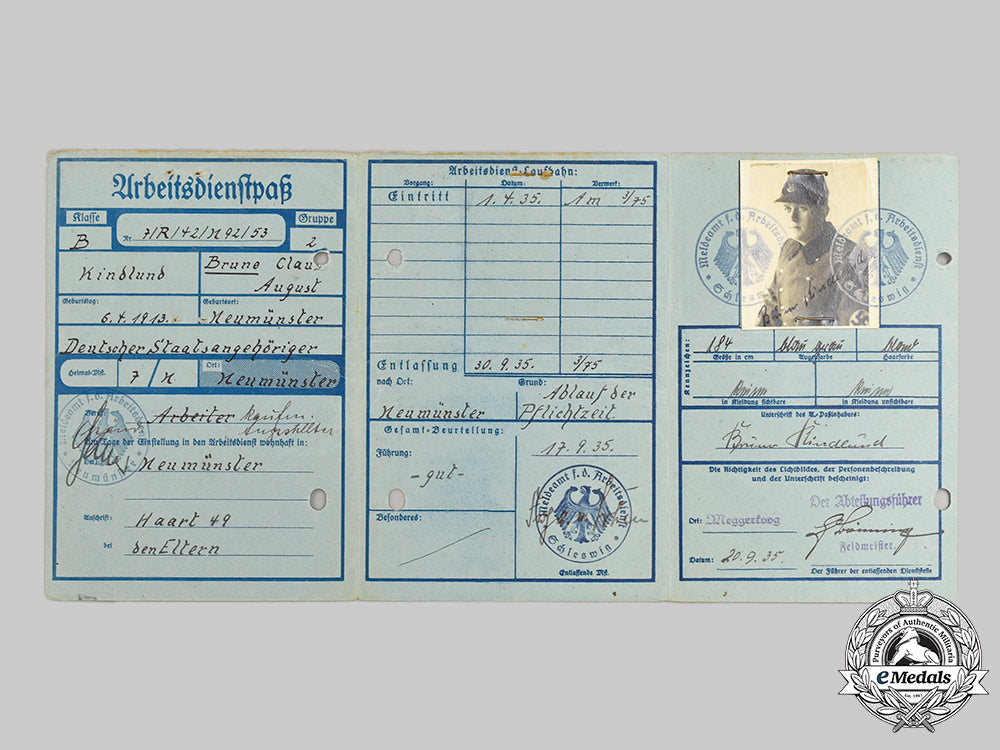 Arbeitsdienstpaß
Klasse
Gruppe
B
Nr. 7/R/42/N 92/53
2
Kindlund
Bruno Claus
August
Geburtstag:
Geburtsort:
6.4.1913.
Neumünster
Deutscher Staatsangehöriger
Heimat-Mst.
7 / N
Ort:
Neumünster
Beruf:
Arbeiter Kaufm.
Angestellter
Am Tage der Einstellung in den Arbeitsdienst wohnhaft in:
Ort:
Neumünster
Anschrift:
Haart 49
bei
den Eltern
Meldeamt f. d. Arbeitsdienst
Neumünster
Arbeitsdienst-Laufbahn:
Vorgang:
Datum:
Vermerk:
Eintritt
1.4.35.
1m 3/75
Entlassung
30.9.35.
3/75
nach Ort:
Grund:
Neumünster
Ablauf der
Pflichtzeit
Gesamt-Beurteilung:
17.9.35.
Führung:
-gut-
Besonderes:
Meldeamt f. d. Arbeitsdienst
Schleswig
Entlassende Mst.
Meldeamt f. d. Arbeitsdienst
Schleswig
Meldeamt f. d. Arbeitsdienst
Schleswig
Kennzeichen:
184
blau grau
blond
Größe in cm
Augenfarbe
Haarfarbe
in Kleidung sichtbare
in Kleidung unsichtbare
Unterschrift des A.-Paßinhabers:
Bruno Kindlund
Die Richtigkeit des Lichtbildes, der Personenbeschreibung
und der Unterschrift bescheinigt:
Der Abteilungsführer
Ort: Meggerkoog
Feldmeister.
Datum: 20.9.35.
Der Führer der entlassenden Dienststelle
Purveyors of Authentic Militaria
eMedals
Est. 1967